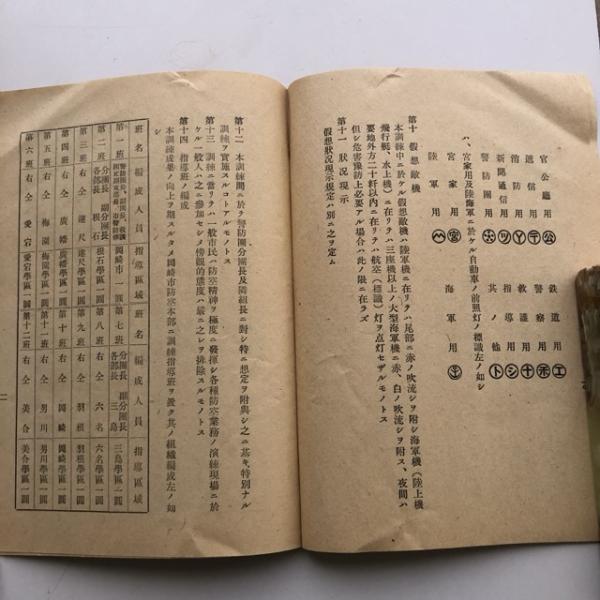 官公廳用 ㊂公 鐵道用 工
遞信用 〒 警察用 ホ
消防用 Y 救護用 十
新聞通信用 ツ 指導用 シ
警防團用 其ノ他 ト
ハ、宮家用及陸海軍ニ於ケル自動車ノ前照灯ノ標識左ノ如シ
宮家用 宮 海軍用
陸軍用
第十 假想敵機
本訓練中ニ於ケル假想敵機ハ陸軍機ニ在リテハ尾部ニ赤ノ吹流シヲ附シ海軍機(陸上機
飛行艇、水上機)ニ在リテハ三座機以上ノ大型海軍機ニ赤、白ノ吹流シヲ附ス、夜間ハ
要地外方二十粁以内ニ在リテハ航空(標識)灯ヲ点灯セザルモノトス
但シ危害豫防上必要アル場合ハ此ノ限ニ在ラズ
第十一 狀況現示
假想狀況現示規定ハ別ニ之ヲ定ム
第十二 本訓練間ニ於テ警防團分團長及隣組長ニ對シ特ニ想定ヲ附與シ之ニ基キ特別ナル
訓練ヲ實施スルコトアルモノトス
第十三 訓練ニ當リテハ一般市民ハ防空精神ヲ極度ニ發揮シ各種防空業務ノ演練現場ニ於
ケル一般人ハ之ニ參加セシメ傍觀的態度ハ嚴ニ之レヲ排除スルモノトス
第十四 指導班ノ編成
本訓練成果ノ向上ヲ期スルタメ岡崎市防空本部ニ訓練指導班ヲ置ク其ノ組織編成左ノ如
シ
班名 編成人員 指導區域 班名 編成人員 指導區域
第一班 岡崎市一圓 第七班 分團長 副分團長 各部長 三島 三島學區一圓
第二班 分團長 副分團長 各部長 根石 根石學區一圓 第八班 右仝 六名 六名學區一圓
第三班 右仝 連尺 連尺學區一圓 第九班 右仝 羽根 羽根學區一圓
第四班 右仝 廣幡 廣幡學區一圓 第十班 右仝 岡崎 岡崎學區一圓
第五班 右仝 梅園 梅園學區一圓 第十一班 右仝 男川 男川學區一圓
第六班 右仝 愛宕 愛宕學區一圓 第十二班 右仝 美合 美合學區一圓